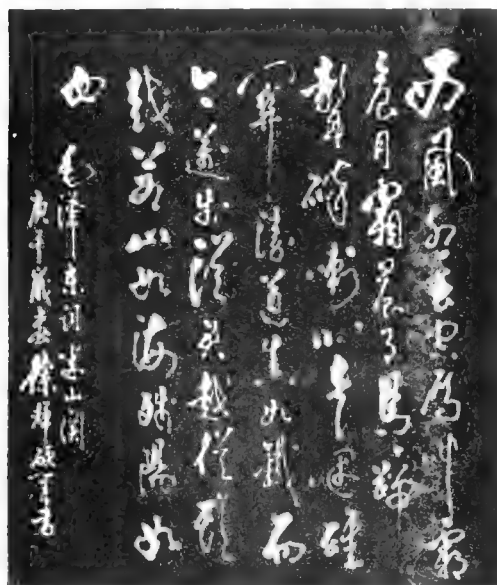 西風烈長空雁叫霜
晨月霜晨月馬蹄
聲碎喇叭聲咽雄
關漫道真如鐵而
今邁步從頭越從頭
越蒼山如海殘陽如
血 毛澤東詞婁山關
庚午歲